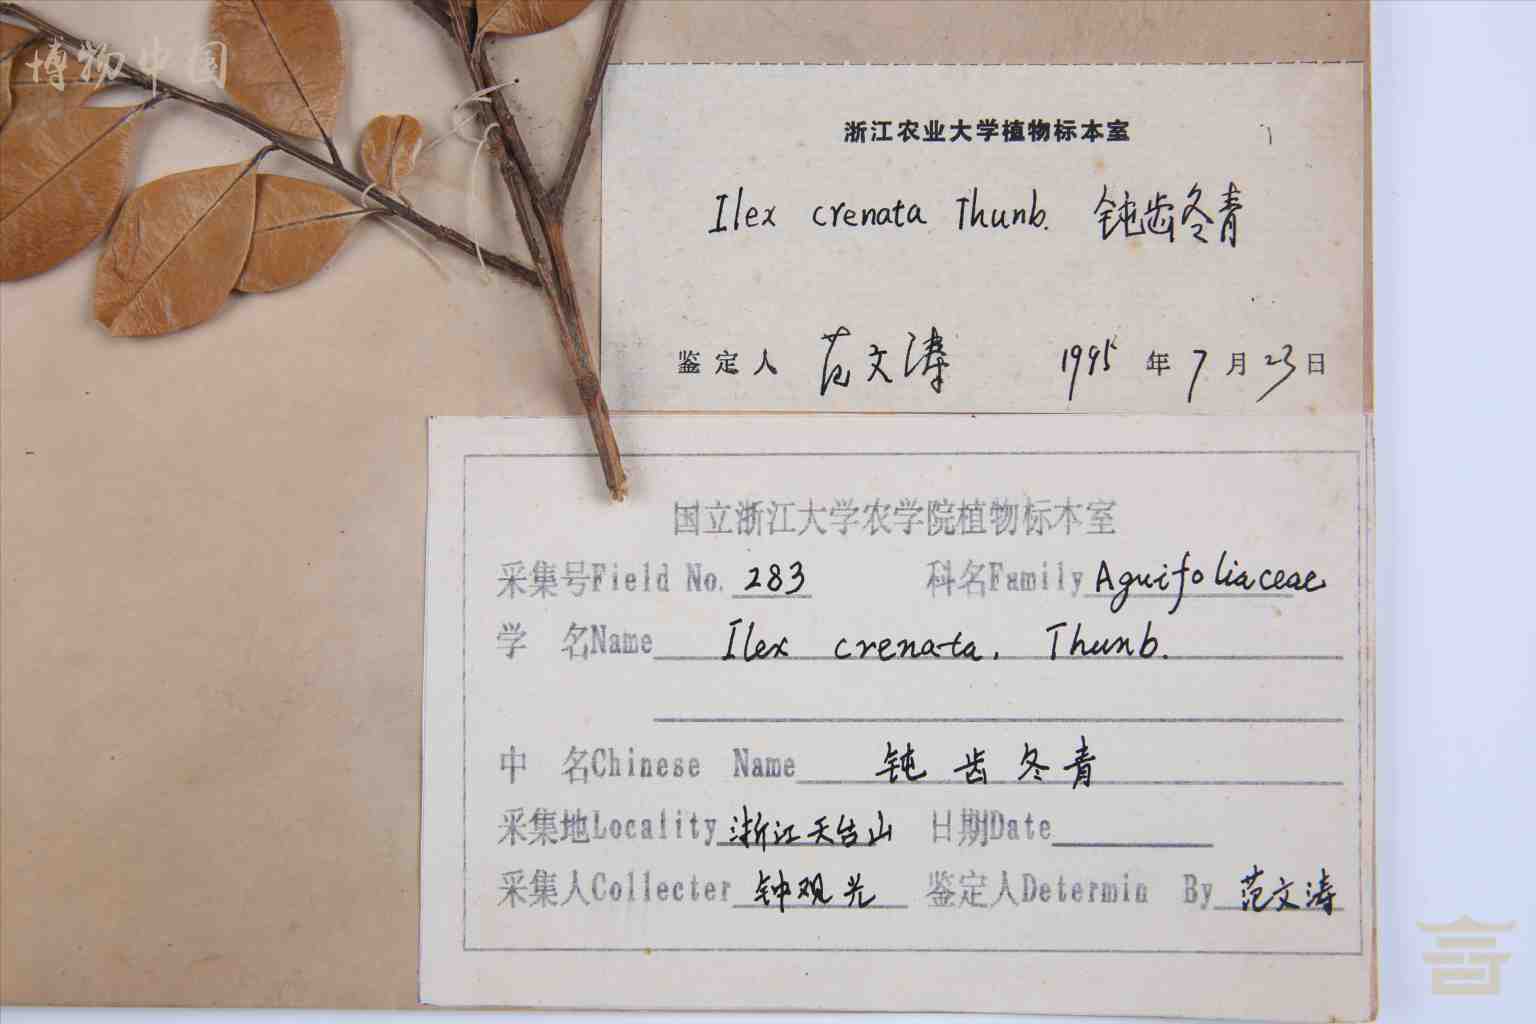 博物中国
浙江农业大学植物标本室
Ilex crenata Thunb. 钝齿冬青
鉴定人 范文涛 1995年7月23日
国立浙江大学农学院植物标本室
采集号Field No. 283 科名Family Aguifoliaceae
学 名Name Ilex crenata, Thunb.
中 名Chinese Name 钝齿冬青
采集地Locality 浙江天台山 日期Date
采集人Collecter 钟观光 鉴定人Determin By 范文涛